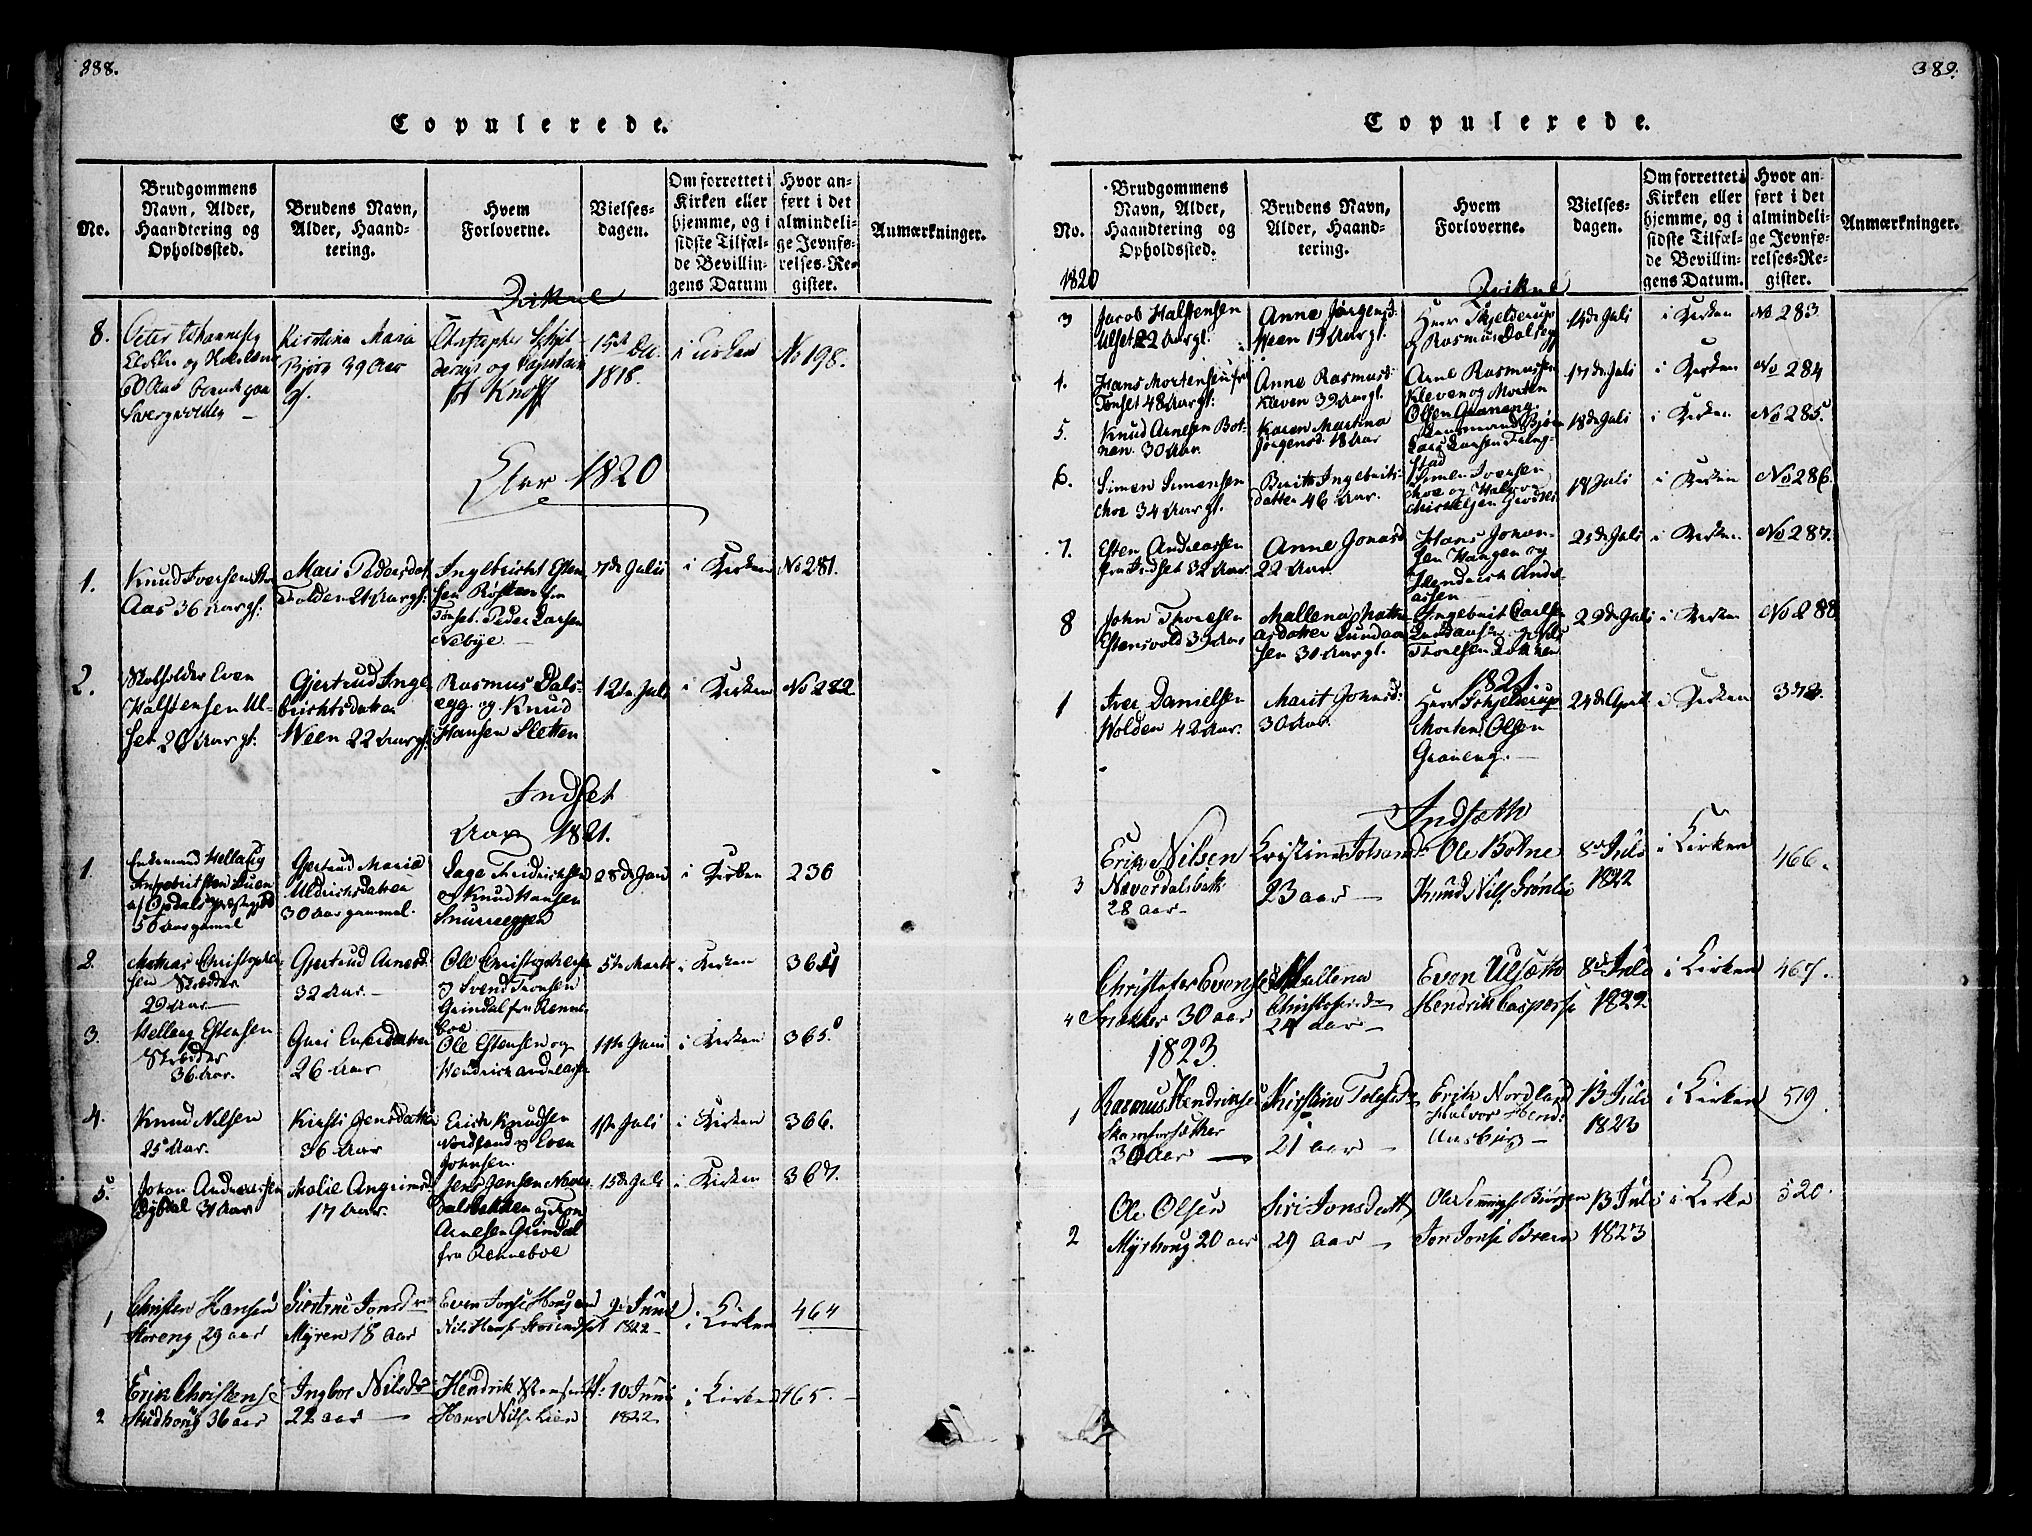 388.
Copulerede.
No.
Brudgommens
Navn, Alder,
Haandtering og
Opholdssted.
Brudens Navn,
Alder, Haand-
tering.
Hvem
Forloverne.
Vielses-
dagen.
Om forrettet i
Kirken eller
hjemme, og i
sidste Tilfæl-
de Bevillin-
gens Datum
Hvor an-
ført i det
almindeli-
ge Jevnfø-
relses-Re-
gister.
Anmærkninger.
Qvikne
8.
Peter Johannesen
60 Aar
Kirstina Maria
Bjørn 39 Aar
Christopher Schjel-
derup og Capitain
Knoff
15de
1818.
i
No 198.
Aar 1820
1.
Knud Iversen
Aas 36 Aar gl:
Mari Pedersdat
Tolden 21 Aar gl:
Ingebricht Esten
sen Røsten fra
Tønset. Peder Larsen
Nebye
7de Julii
i Kirken
No 281.
2.
Even
Halstensen Ul-
set 26 Aar gl:
Gjertrud Inge
brichtsdatter
Wien 22 Aar gl:
Rasmus Dals-
egg og Knud
Hansen Sletten
12te Juli
i Kirken
No 282
Indset
Aar 1821.
1
Enkemand Hellesig
Ingebritsen Duen
af Opdals Præstegjeld
56 Aar gamel
Gjertrud Maria
Uldrichsdatter
30 Aar gammel.
Lage Fredrichsen
og Knud Hansen
Snurreggen
28de Jan
i Kirken
236
2.
Mathias Christophe
sen
29 Aar
Gjertrud Arnesd
32 Aar.
Ole Christophersen
og Svend Tronsen
Grindal fra Renne
boe
5te Marts
i Kirken
364
3.
Helleng Estensen
36 Aar.
Guri
26 Aar
Ole Estensen og
Hendrich Andreassen
1ste Juni
i Kirken
365
4.
Knud Nilsen
25 Aar.
Kirsti Jensdatter
36 Aar
Erich Knudsen
Nordland og Even
Johnsen.
1ste Juli
i Kirken
366.
5.
Johan Andreassen
31 Aar
Malie Angrimsd
17 Aar.
Jens Jensen Næver
dalsbakken og Tron
Arnesen Grindal
fra Renneboe
15de Juli
i Kirken
367.
1
Christen Hansen
Storeng 29 aar
Kirstine Jonsd
Myren 18 aar
Even Jonse
Nils Hanse
9de Junii
1822
i Kirken
464
2
Erik Christense
Stubhoug 36 aar
Ingbor Nilsd
22 aar
Hendrik
Hans Nilse Lien
10 Junii
1822
i Kirken
465.
389.
Copulerede.
No.
Brudgommens
Navn, Alder,
Haandtering og
Opholdssted.
Brudens Navn,
Alder, Haand-
tering.
Hvem
Forloverne.
Vielses-
dagen.
Om forrettet i
Kirken eller
hjemme, og i
sidste Tilfæl-
de Bevillin-
gens Datum.
Hvor an-
ført i det
almindeli-
ge Jevnfø-
relses-Re-
gister.
Anmærkninger.
1820
Qvikne
3
Jacob Halstensen
Ulset 22 Aar gl.
Anne Jørgensd:
Wien 19 Aar gl.
Herr Schjelderup
og Rasmus Dalseg
14de Juli
i Kirken
No 283
4.
Hans Mortensen fra
Tønset 48 Aar gl:
Anne Rasmusd:
Kleven 39 Aar gl.
Arne Rasmussen
Kleven og Morten
Olsen Graneng.
17de Juli
i Kirken
No 284
5.
Knud Arnesen Bot-
nen. 30 Aar.
Karen Martina
Jørgensd. 18 Aar
Bjørn
Lars Larsen
stad
18de Juli
i Kirken
No 285
6.
Simen Simensen
Moe 34 Aar gl.
Berit Ingebrits-
datter 46 Aar.
Simen Iversen
Moe og Halvor
18 Juli
i Kirken
No 286
7.
Esten Andreassen
fra Indset 32 Aar
Anne Jonasd
22 Aar.
Hans Jonan-
sen Haugen og
Hendrich Andr-
eassen
25de Juli
i Kirken
No 287.
8
John Thoresen
Estensvold 39 Aar
Mallena Matthi
asdatter Lundaa
sen 30 Aar gl.
Ingebrit Carlsen
Lundaasen og
Thoresen
29de Juli
i Kirken
No 288
1821.
1
Iver Danielsen
Wolden 42 Aar.
Marit Johnsd:
30 Aar.
Herr Schjelderup
Morten Olsen
Graneng.
24de April
i Kirken
373.
Indsæth
3
Erik Nilsen
Næverdalsbak:
28 aar
Kristine
23 aar
Ole Botne
Knud Nilse Grønli
8de Juli
1822
i Kirken
466.
4
Christofer Evense
30 aar
Mallena
Christofersd
24 aar
Even Ulsæth
Hendrik Casperse
8de Juli
1822
i Kirken
467.
1823
1
Rasmus Hendrikse
30 Aar
Kirstine Tolefsd
21 aar
Erik Nordland
Halvor Hend:
13 Juli
1823
i Kirken
519.
2
Ole Olsen
Myrhoug 20 aar
Siri Jonsdatt
29 aar
Ole Bjørgen
Jon Jonse
13 Juli
1823
i Kirken
520.